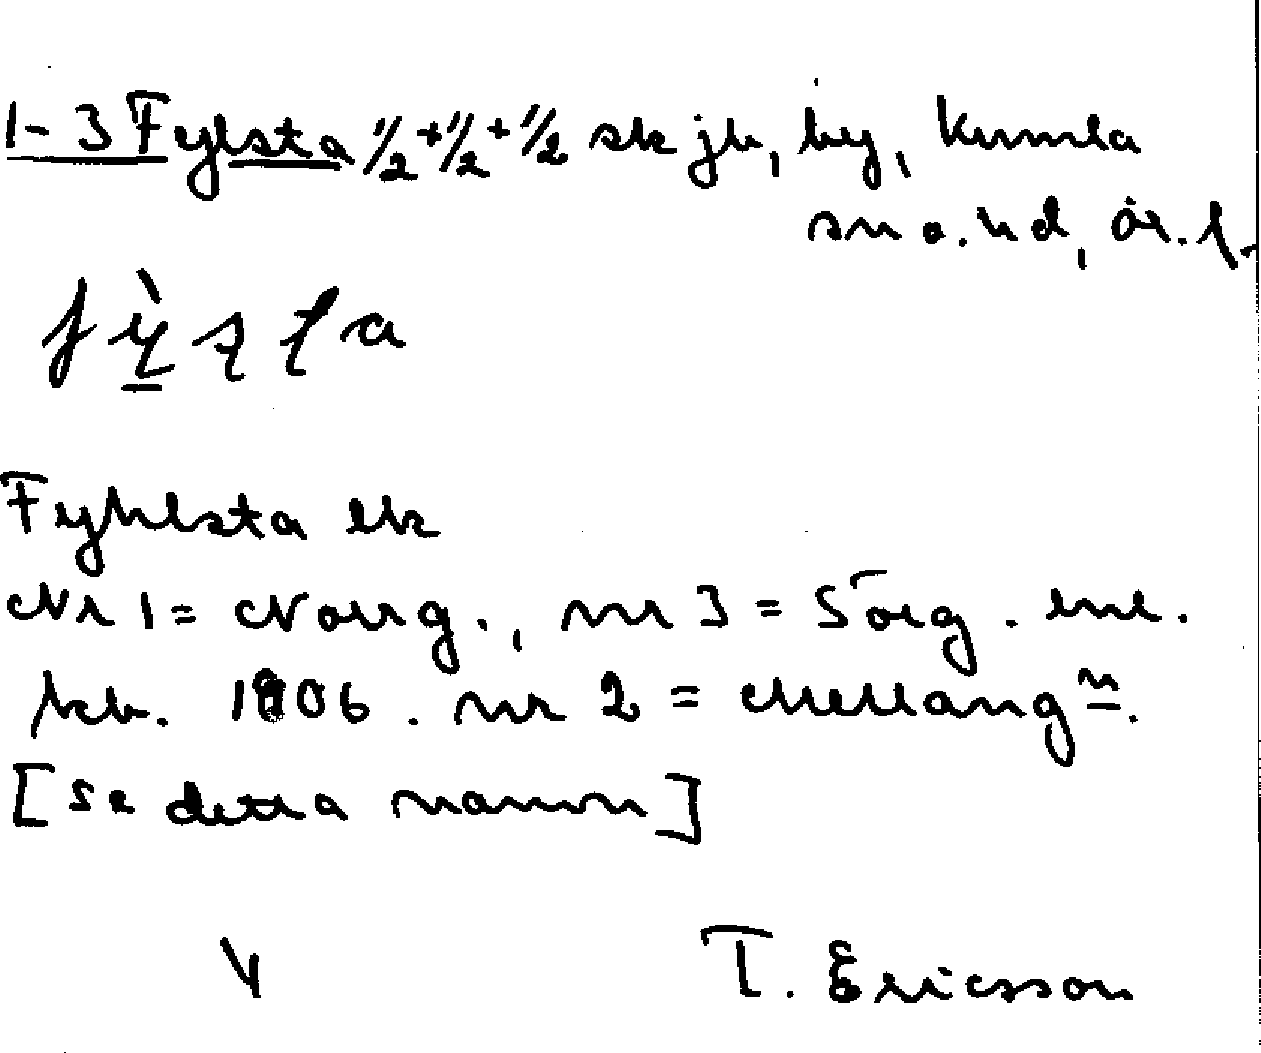 1-3 Fylsta 1/2+1/2+1/2 sk jb, by, Kumla
sn o. hd, ör. l.
Fyhlsta ek
Nr 1 = Norrg., nr 3 = Sörg. enl.
kb. 1806. nr 2 = Mellang n.
[se detta namn]
T. Ericsson